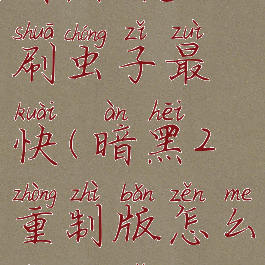 shuā chóng zǐ zuì
刷虫子最
kuài àn hēi
快(暗黑2
zhòng zhì bǎn zěn me
重制版怎么